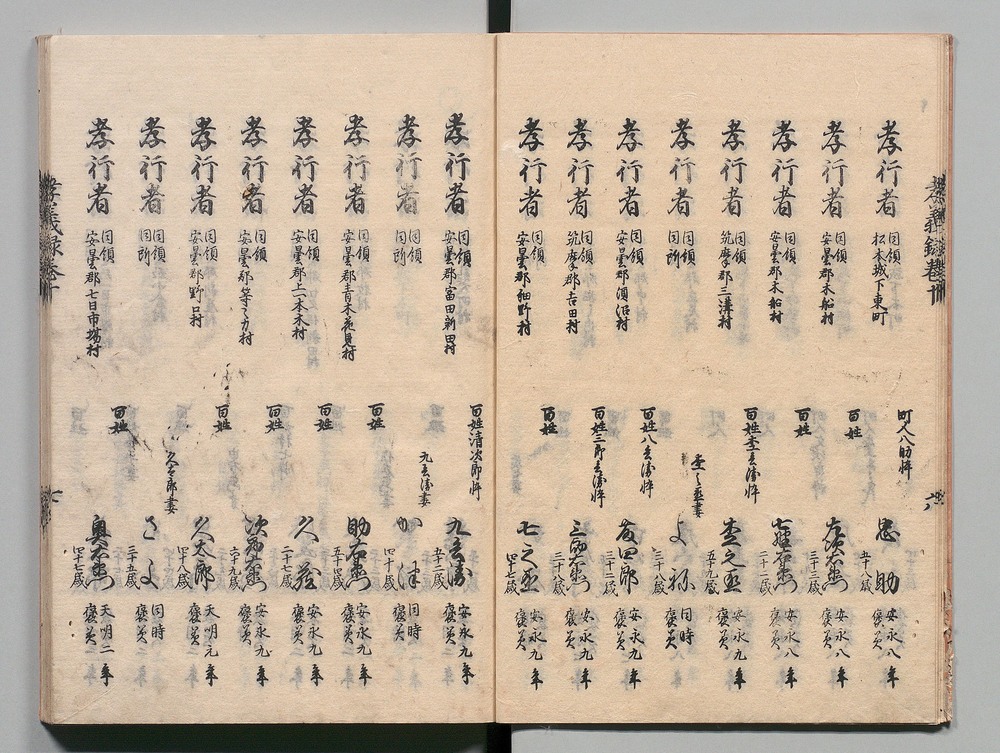 孝行者 同領 松本城下東町 町人八助忰 忠助 五十八歳 安永八年 褒美
孝行者 同領 安曇郡木船村 百姓 三十八歳 安永八年 褒美
孝行者 同領 安曇郡木船村 百姓 七郎右衛門 安永八年 褒美
孝行者 同領 筑摩郡三溝村 百姓 杢之丞 五十九歳 安永九年 褒美
孝行者 同領 同所 杢之丞妻 よね 三十八歳 同時 褒美
孝行者 同領 安曇郡須沼村 百姓八兵衛忰 友四郎 三十二歳 安永九年 褒美
孝行者 同領 筑摩郡吉田村 百姓三郎兵衛忰 三郎右衛門 三十三歳 安永九年 褒美
孝行者 同領 安曇郡細野村 百姓 七之丞 四十七歳 安永九年 褒美
孝義録巻十
孝行者 同領 安曇郡富田新田村 百姓清次郎忰 九兵衛 五十二歳 安永九年 褒美
孝行者 同領 同所 九兵衛妻 かつ 四十歳 同時 褒美
孝行者 同領 安曇郡青木花見村 百姓 助右衛門 五十四歳 安永九年 褒美
孝行者 同領 安曇郡上一本木村 百姓 久蔵 二十七歳 安永九年 褒美
孝行者 同領 安曇郡等々力村 百姓 次郎右衛門 六十九歳 安永九年 褒美
孝行者 同領 安曇郡野口村 百姓 久太郎 四十八歳 天明元年 褒美
孝行者 同領 同所 久太郎妻 さよ 三十五歳 同時 褒美
孝行者 同領 安曇郡七日市場村 百姓 奥右衛門 四十七歳 天明二年 褒美
孝義録巻十
七